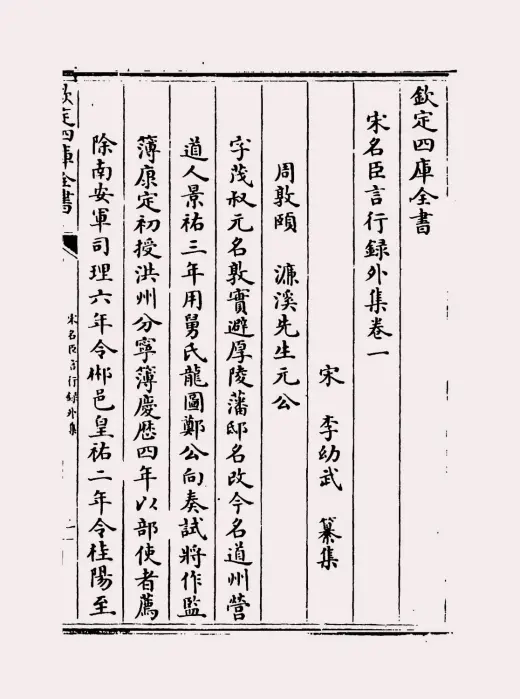 欽定四庫全書
宋名臣言行録外集卷一
宋 李幼武 纂集
周敦頤 濂溪先生元公
字茂叔元名敦實避厚陵藩邸名改今名道州營
道人景祐三年用舅氏龍圖鄭公向奏試將作監
簿康定初授洪州分寧簿慶歴四年以部使者薦
除南安軍司理六年令郴邑皇祐二年令桂陽至
欽定四庫全書
宋名臣言行録外集
一